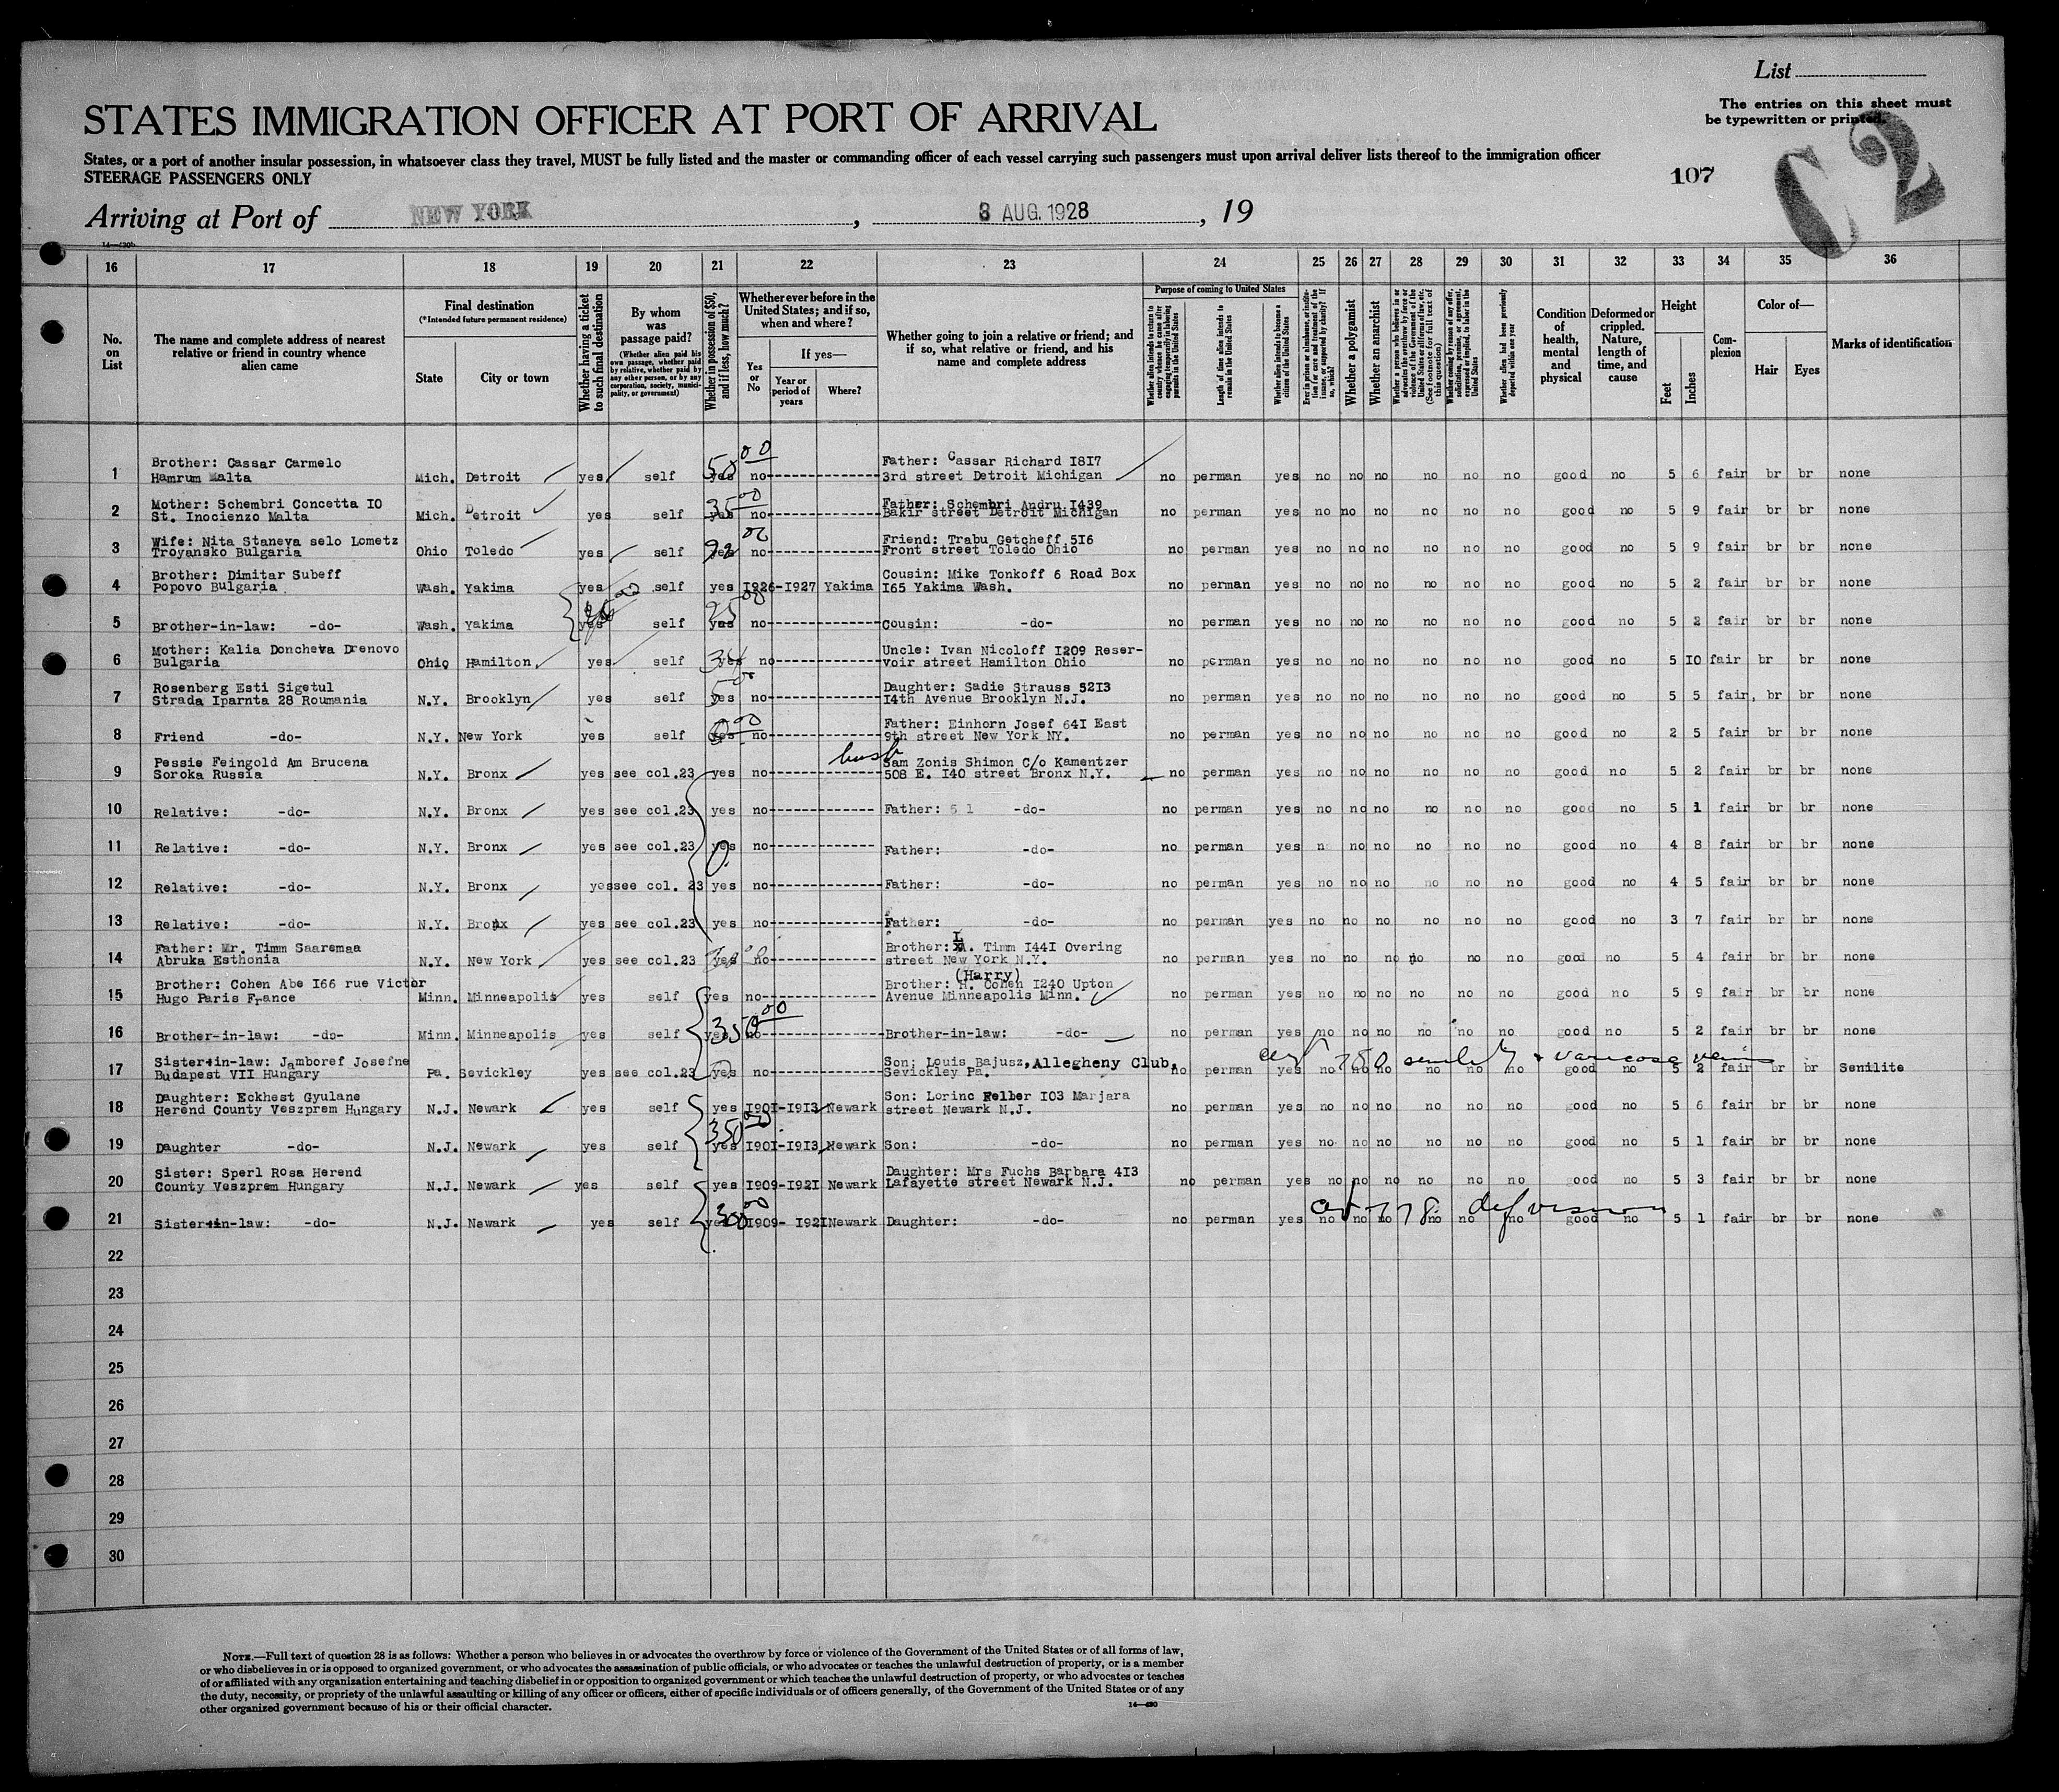 List
The entries on this sheet must
be typewritten or printed.
STATES IMMIGRATION OFFICER AT PORT OF ARRIVAL
States, or a port of another insular possession, in whatsoever class they travel, MUST be fully listed and the master or commanding officer of each vessel carrying such passengers must upon arrival deliver lists thereof to the immigration officer
STEERAGE PASSENGERS ONLY
107
C 2
Arriving at Port of NEW YORK, 8 AUG. 1928, 19
14—430b
16 17 18 19 20 21 22 23 24 25 26 27 28 29 30 31 32 33 34 35 36
No. on List
The name and complete address of nearest relative or friend in country whence alien came
Final destination
(*Intended future permanent residence)
State
City or town
Whether having a ticket to such final destination
By whom was passage paid?
(Whether alien paid his own passage, whether paid by relative, whether paid by any other person, or by any corporation, society, municipality, or government)
Whether in possession of $50, and if less, how much?
Whether ever before in the United States; and if so, when and where?
Yes or No
If yes—
Year or period of years
Where?
Whether going to join a relative or friend; and if so, what relative or friend, and his name and complete address
Purpose of coming to United States
Whether alien intends to return to country whence he came after engaging temporarily in laboring pursuits in the United States
Length of time alien intends to remain in the United States
Whether alien intends to become a citizen of the United States
Ever in prison or almshouse, or institution for care and treatment of the insane, or supported by charity? If so, which?
Whether a polygamist
Whether an anarchist
Whether coming by reason of any offer, solicitation, promise, or agreement, expressed or implied, to labor in the United States
Whether alien had been previously deported within one year
Condition of health, mental and physical
Deformed or crippled. Nature, length of time, and cause
Height
Feet
Inches
Complexion
Color of—
Hair
Eyes
Marks of identification
1 Brother: Cassar Carmelo
Hamrum Malta Mich. Detroit yes self yes 50 00 no Father: Cassar Richard I817
3rd street Detroit Michigan no perman yes no no no no no no good no 5 6 fair br br none
2 Mother: Schembri Concetta IO
St. Inocienzo Malta Mich. Detroit yes self yes 35 00 no Father: Schembri Andru I439
Bakir street Detroit Michigan no perman yes no no no no no no good no 5 9 fair br br none
3 Wife: Nita Staneva selo Lometz
Troyansko Bulgaria Ohio Toledo yes self yes no Friend: Trabu Getcheff 5I6
Front street Toledo Ohio no perman yes no no no no no no good no 5 9 fair br br none
4 Brother: Dimitar Subeff
Popovo Bulgaria Wash. Yakima yes self yes I926-I927 Yakima Cousin: Mike Tonkoff 6 Road Box
I65 Yakima Wash. no perman yes no no no no no no good no 5 2 fair br br none
5 Brother-in-law: -do- Wash. Yakima yes self yes 25 00 no Cousin: -do- no perman yes no no no no no no good no 5 2 fair br br none
6 Mother: Kalia Doncheva Drenovo
Bulgaria Ohio Hamilton yes self yes no Uncle: Ivan Nicoloff I209 Reser-
voir street Hamilton Ohio no perman yes no no no no no no good no 5 IO fair br br none
7 Rosenberg Esti Sigetul
Strada Iparnta 28 Roumania N.Y. Brooklyn yes self yes no Daughter: Sadie Strauss 52I3
I4th Avenue Brooklyn N.J. no perman yes no no no no no no good no 5 5 fair, br br none
8 Friend -do- N.Y. New York yes self yes no Father: Einhorn Josef 64I East
9th street New York NY. no perman yes no no no no no no good no 2 5 fair br br none
9 Pessie Feingold Am Brucena
Soroka Russia N.Y. Bronx yes see col.23 yes no husb Sam Zonis Shimon C/o Kamentzer
508 E. I40 street Bronx N.Y. no perman yes no no no no no no good no 5 2 fair br br none
10 Relative: -do- N.Y. Bronx yes see col.23 yes no Father: -do- no perman yes no no no no no no good no 5 1 fair br br none
11 Relative: -do- N.Y. Bronx yes see col.23 yes 0. no Father: -do- no perman yes n no no no no no good no 4 8 fair br br none
12 Relative: -do- N.Y. Bronx yes see col. 23 yes no Father: -do- no perman yes no no no no no no good no 4 5 fair br br none
13 Relative: -do- N.Y. Bronx yes see col.23 yes no Father: -do- no perman yes no no no no no no good no 3 7 fair br br none
14 Father: Mr. Timm Saaremaa
Abruka Esthonia N.Y. New York yes see col.23 yes no Brother: A. Timm I44I Overing
street New York N.Y. no perman yes no no no no no no good no 5 4 fair br br none
15 Brother: Cohen Abe I66 rue Victor
Hugo Paris France Minn. Minneapolis yes self yes no (Harry)
Brother: H. Cohen I240 Upton
Avenue Minneapolis Minn. no perman yes no no no no no no good no 5 9 fair br br none
16 Brother-in-law: -do- Minn. Minneapolis yes self yes 350 00 no Brother-in-law: -do- no perman yes no no no no no no good no 5 2 fair br br none
17 Sister-in-law: Jamboref Josefne
Budapest VII Hungary Pa. Sevickley yes see col.23 yes no Son: Louis Bajusz, Allegheny Club,
Sevickley Pa. no perman yes no no no no no no good no 5 2 fair br br Senilite
cert senility & varicose veins
18 Daughter: Eckhest Gyulane
Herend County Veszprem Hungary N.J. Newark yes self yes I90I-I9I3 Newark Son: Lorinc Feller I03 Marjara
street Newark N.J. no perman yes no no no no no no good no 5 6 fair br br none
19 Daughter -do- N.J. Newark yes self yes 350 00 I90I-I9I3 Newark Son: -do- no perman yes no no no no no no good no 5 1 fair br br none
20 Sister: Sperl Rosa Herend
County Veszprem Hungary N.J. Newark yes self yes I909-I92I Newark Daughter: Mrs Fuchs Barbara 4I3
Lafayette street Newark N.J. no perman yes no no no no no no good no 5 3 fair br br none
21 Sister-in-law: -do- N.J. Newark yes self yes 300 00 I909- I92I Newark Daughter: -do- no perman yes no no no no no no good no 5 1 fair br br none
22
23
24
25
26
27
28
29
30
NOTE.—Full text of question 28 is as follows: Whether a person who believes in or advocates the overthrow by force or violence of the Government of the United States or of all forms of law,
or who disbelieves in or is opposed to organized government, or who advocates the assassination of public officials, or who advocates or teaches the unlawful destruction of property, or is a member
of or affiliated with any organization entertaining and teaching disbelief in or opposition to organized government or which teaches the unlawful destruction of property, or who advocates or teaches
the duty, necessity, or propriety of the unlawful assaulting or killing of any officer or officers, either of specific individuals or of officers generally, of the Government of the United States or of any
other organized government because of his or their official character.
14—430